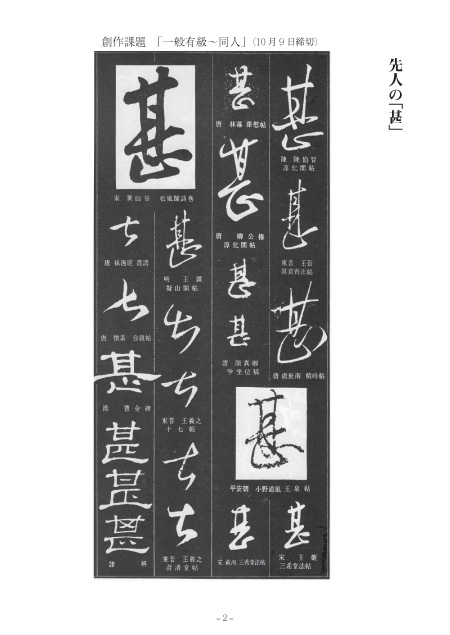 創作課題　「一般有級～同人」（10月9日締切）
先人の「甚」
甚
陳　陳伯智
淳化閣帖
甚
東晋　王筠
甚
唐　虞世南　積時帖
甚
平安朝　小野道風　玉泉帖
甚
宋　王巖
三希堂法帖
甚
唐　林藻　深慰帖
甚
唐　柳公権
淳化閣帖
甚
甚
唐　顔真卿
争坐位稿
甚
三希堂法帖
甚
宋　黄山谷　松風閣詩巻
甚
明　王鐸
擬山園帖
甚
甚
東晋　王羲之
十七帖
甚
甚
東晋　王羲之
澄清堂帖
甚
唐　孫過庭　書譜
甚
唐　懐素　自叙帖
甚
漢　曹全碑
甚
甚
甚
隷　辨
－2－